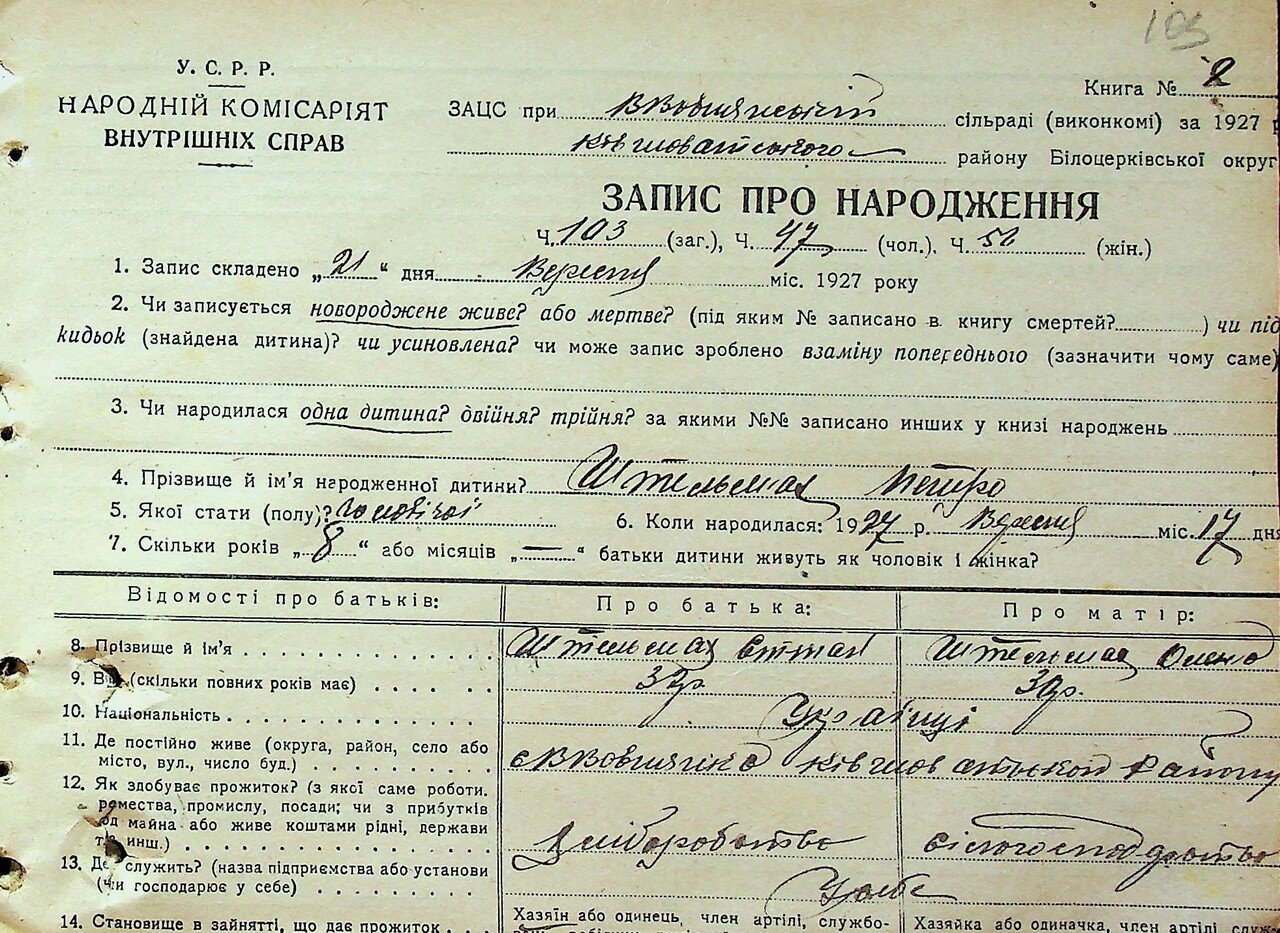 103
У. С. Р. Р.
НАРОДНІЙ КОМІСАРІЯТ
ВНУТРІШНІХ СПРАВ
Книга № 2
ЗАЦС при сільраді (виконкомі) за 1927
району Білоцерківської округ
ЗАПИС ПРО НАРОДЖЕННЯ
Ч. 103 (заг.), Ч. 47 (чол.). Ч. (жін.)
1. Запис складено „21“ дня Вересня міс. 1927 року
2. Чи записується новороджене живе? або мертве? (під яким № записано в книгу смертей? ) чи під
кидьок (знайдена дитина)? чи усиновлена? чи може запис зроблено взаміну попереднього (зазначити чому саме)
3. Чи народилася одна дитина? двійня? трійня? за якими №№ записано инших у книзі народжень
4. Прізвище й ім'я народженної дитини? Штельмах Петро
5. Якої стати (полу)? чоловічої 6. Коли народилася: 1927 р. Вересня міс. 17 дня
7. Скільки років „8“ або місяців „—“ батьки дитини живуть як чоловік і жінка?
Відомості про батьків: Про батька: Про матір:
8. Прізвище й ім'я Штельмах Степан Штельмах Олена
9. Вік (скільки повних років має) 32р. 30р.
10. Національність Українці
11. Де постійно живе (округа, район, село або
місто, вул., число буд.) району
12. Як здобуває прожиток? (з якої саме роботи.
ремества, промислу, посади; чи з прибутків
од майна або живе коштами рідні, держави
та инш.) хліборобство
13. Де служить? (назва підприємства або установи
(чи господарює у себе) У себе
14. Становище в зайнятті, що дає прожиток
Хазяїн або одинець, член артілі, службо-
Хазяйка або одиначка, член артілі, служ-